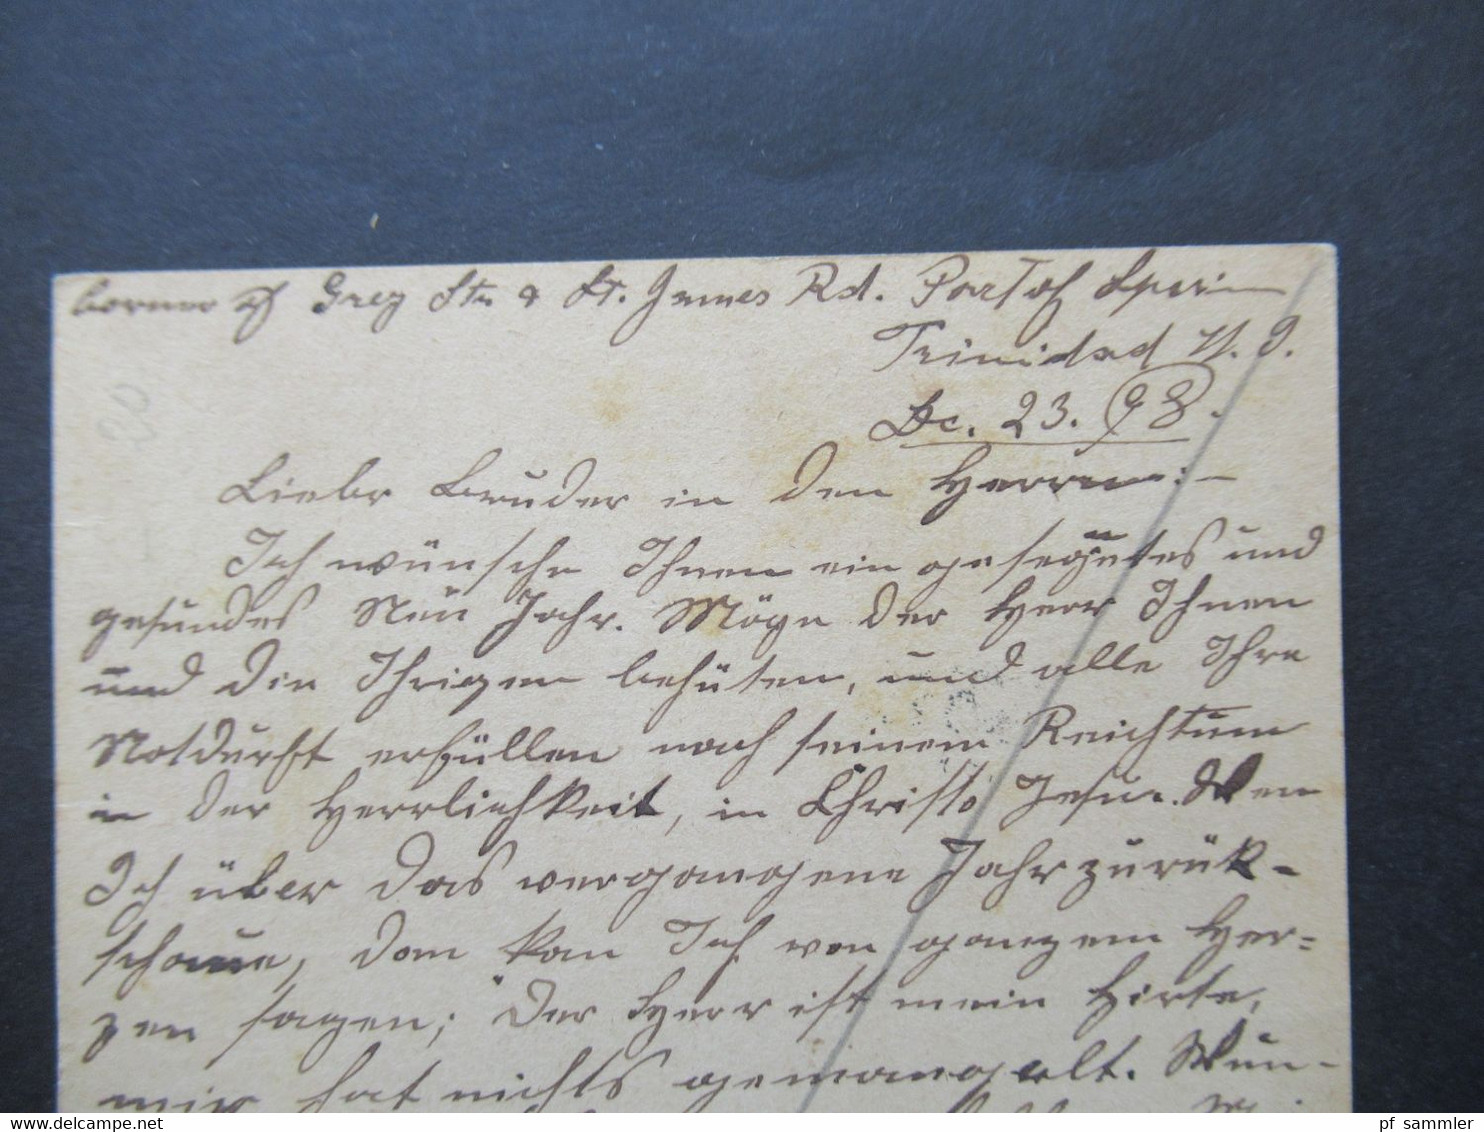 corner of Grey Str & St. James Rd. Port of Spain
Trinidad W. I.
Dec. 23. 98.
Liebe Bruder in den Herrn:-
Ich wünsche Ihnen ein gesegnetes und
gesundes Neu Jahr. Möge der Herr Ihnen
und die Ihrigen behüten, und alle Ihre
Notdurft erfüllen nach seinem Reichtum
in der Herrlichkeit, in Christo Jesu. Wen
Ich über das vergangene Jahr zurük-
schaue, dan kan Ich von ganzem Her=
zen sagen; "Der Herr ist mein Hirte,
mir hat nichts gemangelt. Wun-
www.delcampe.net
pf sammler